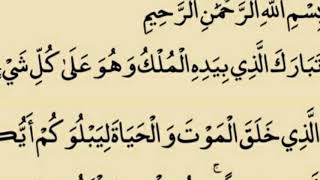 بِسْمِ اللهِ الرَّحْمَٰنِ الرَّحِيْمِ
تَبَارَكَ الَّذِي بِيَدِهِ الْمُلْكُ وَهُوَ عَلَىٰ كُلِّ شَيْءٍ
الَّذِي خَلَقَ الْمَوْتَ وَالْحَيَاةَ لِيَبْلُوَكُمْ